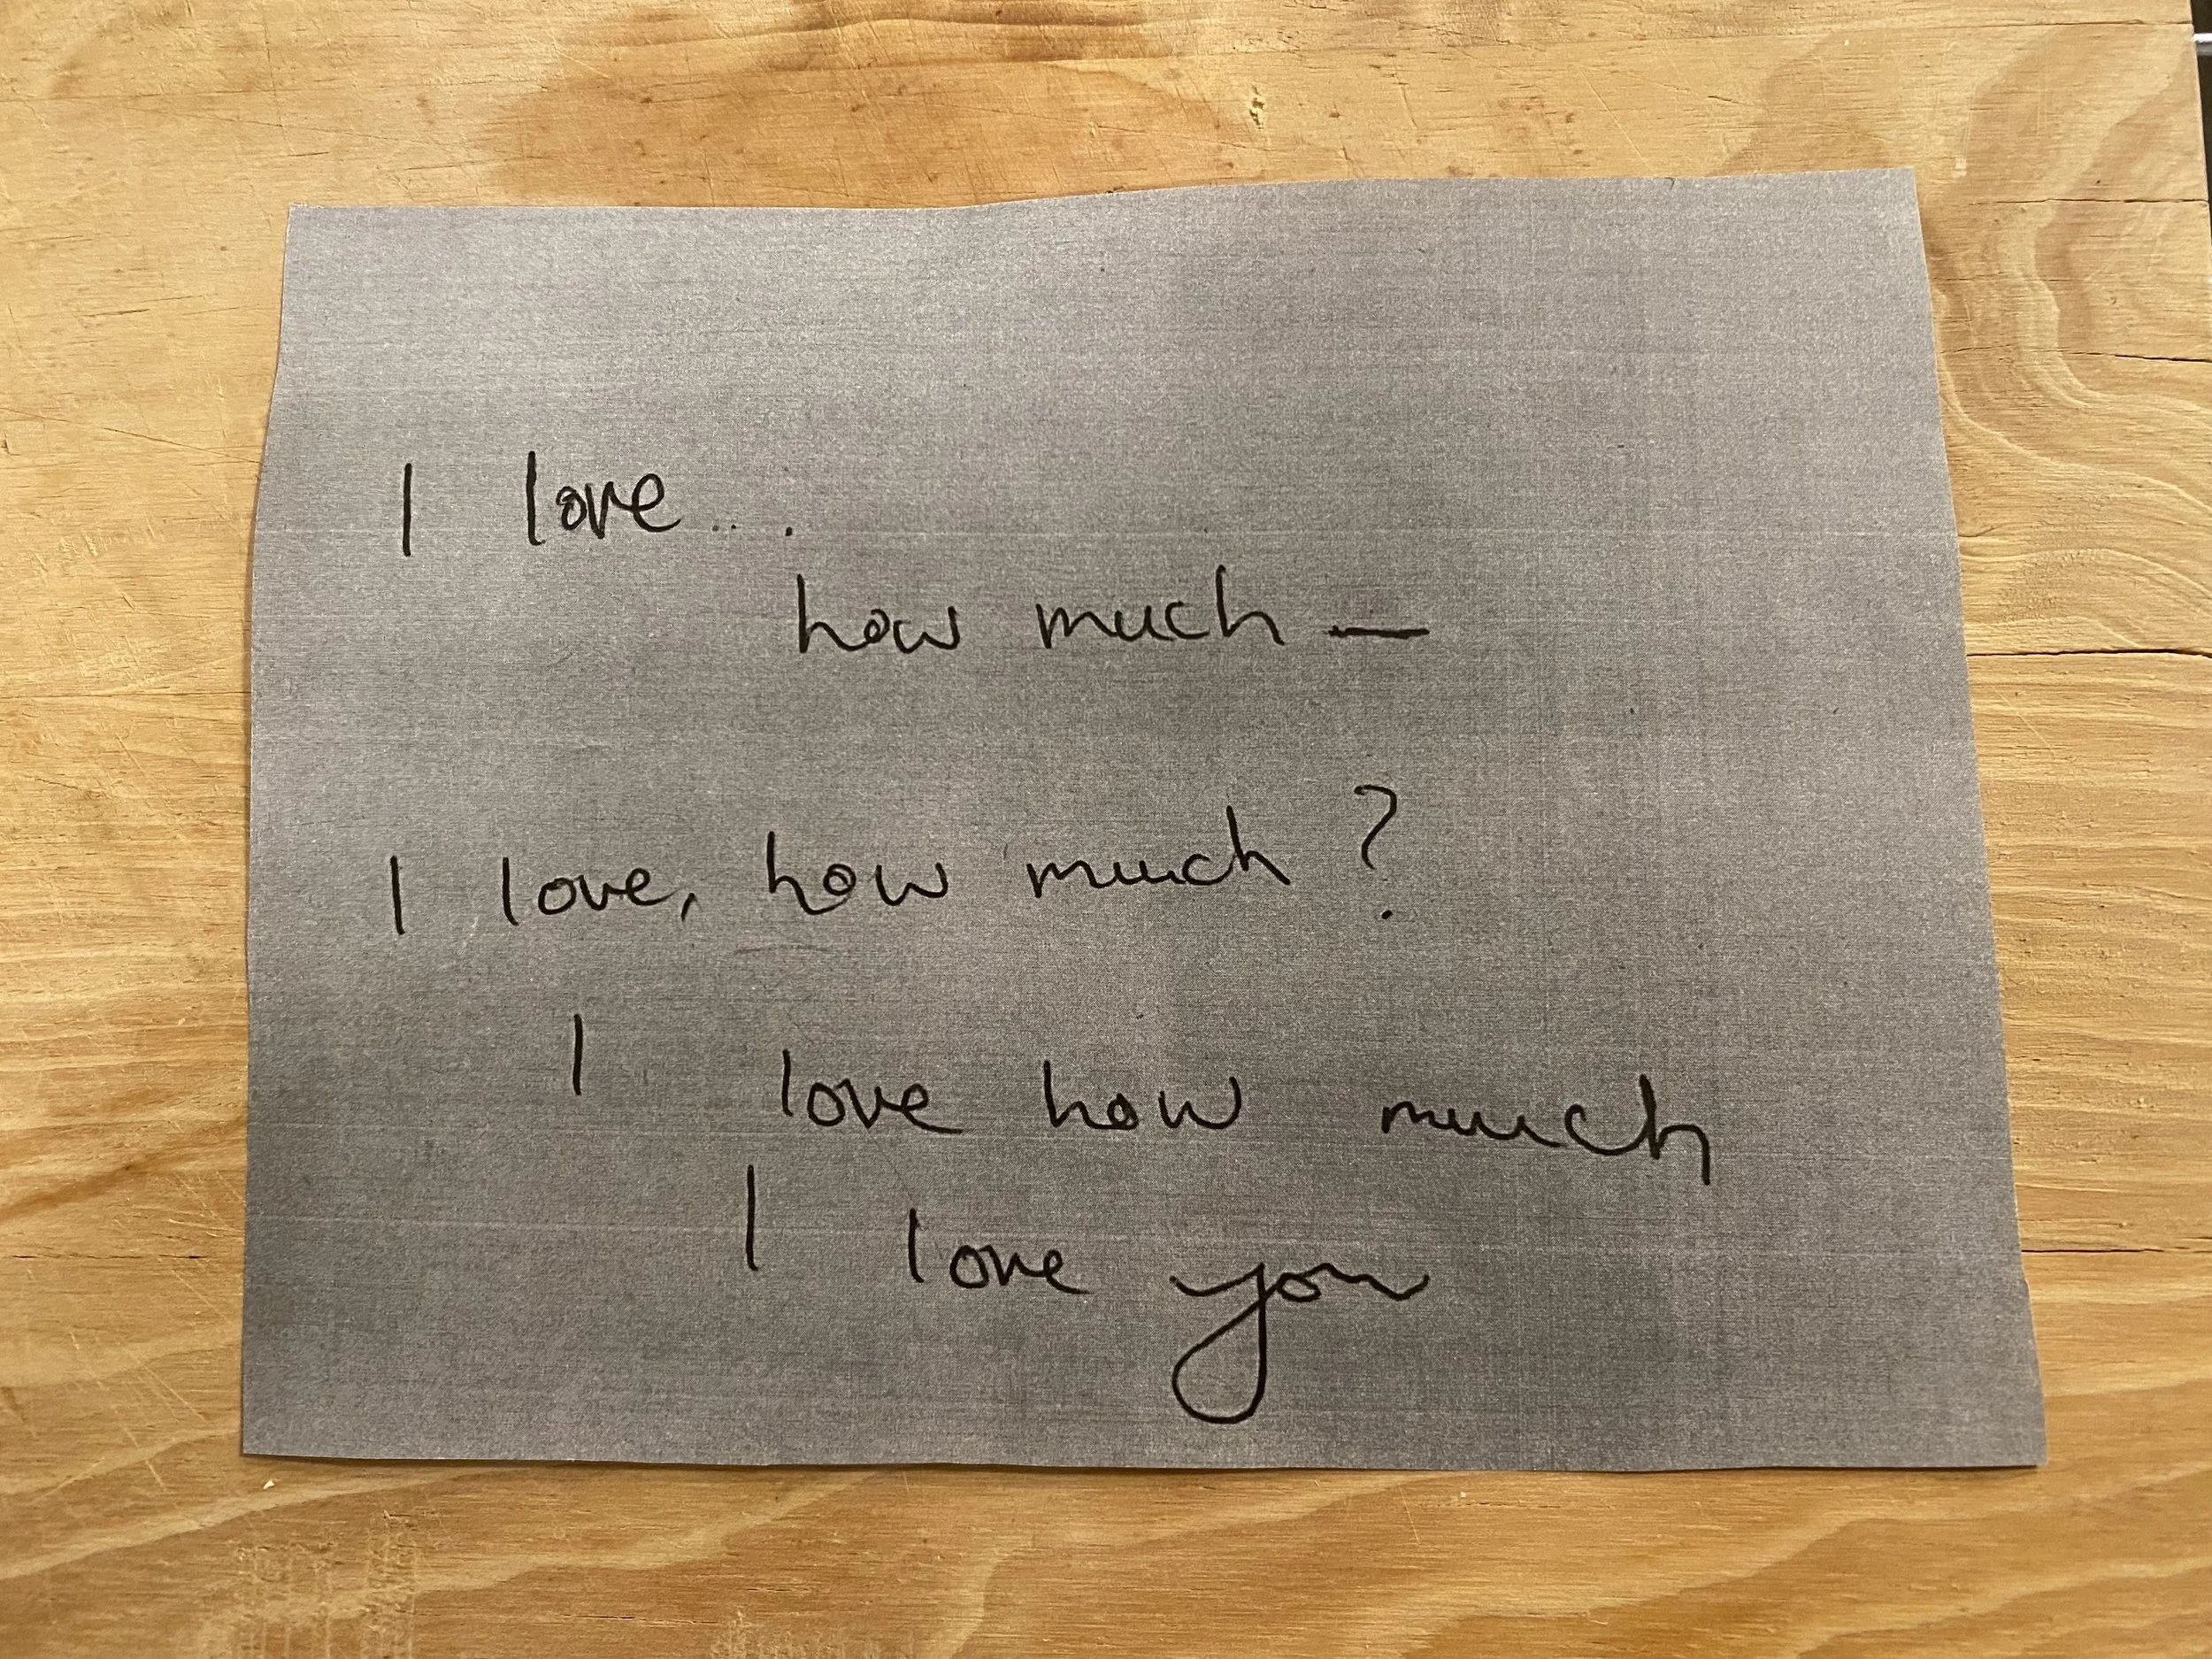 I love...
how much —
I love, how much?
I love how much
I love you